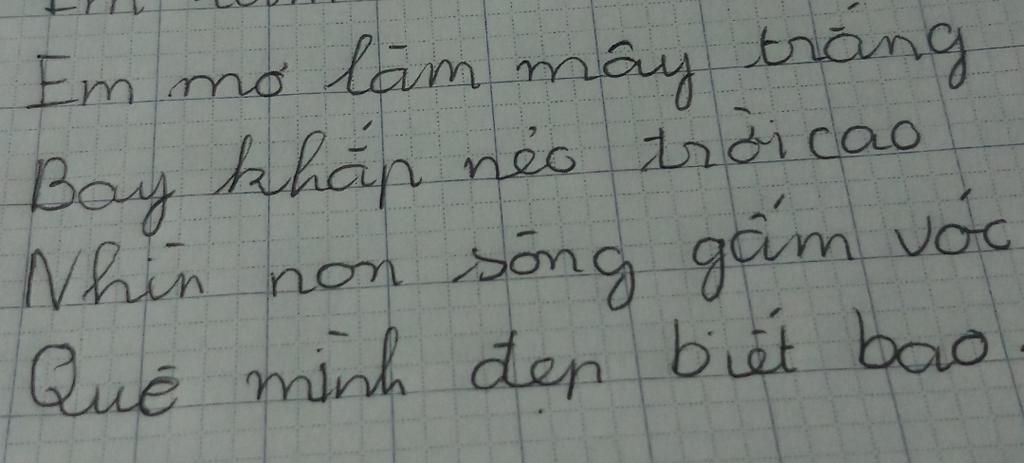 Em mơ làm mây trắng
Bay khắp nẻo trời cao
Nhìn non sông gấm vóc
Quê mình đẹp biết bao.